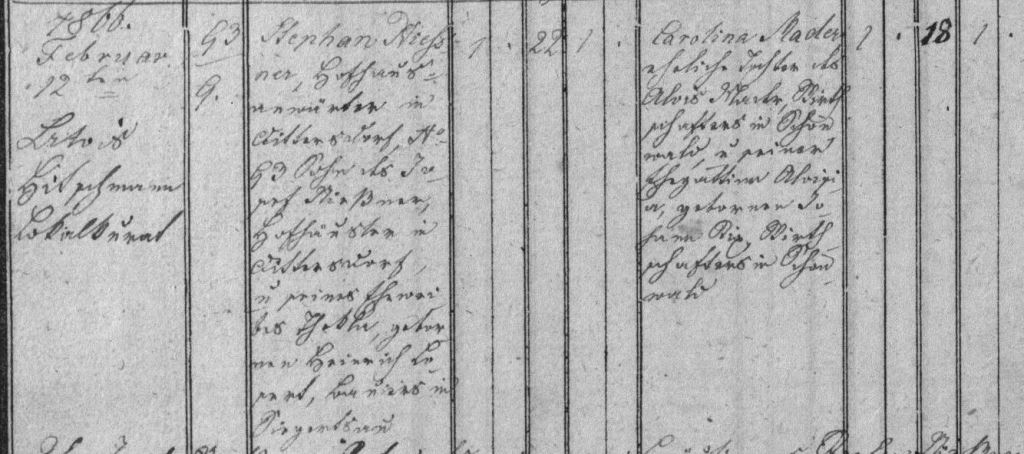 1866.
Februar
12ten
Alois
Hitschmann
Lokalkurat
63
9.
Stephan Nieß-
ner, Hofhaus-
anwärter in
Dittersdorf, No
63 Sohn des Jo-
sef Nießner,
Hofhäusler in
Dittersdorf,
u seines Ehewei-
bes Thekla, gebor-
nen Heinrich
Bauers in
1 . 22 1 .
Carolina Mader
eheliche Tochter des
Alois Mader Wirth-
schafters in Schön-
wald, u seiner
Ehegattinn Aloisi-
a, gebornen Jo-
hann Wirth-
schafters in Schön-
wald
1 . 18 1 .